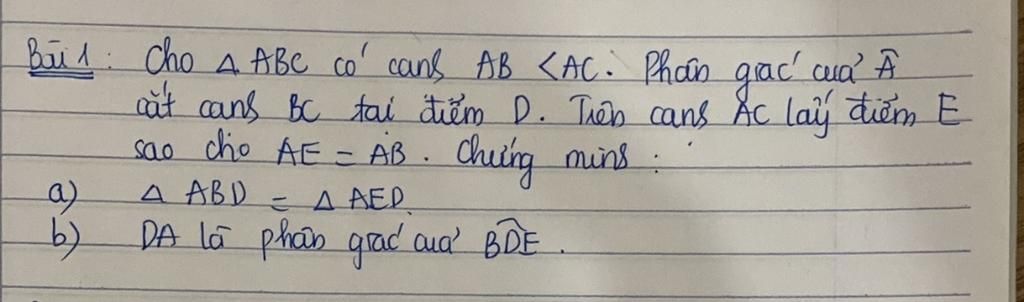 Bài 1: Cho △ ABC có cạnh AB < AC. Phân giác của Â
cắt cạnh BC tại điểm D. Trên cạnh AC lấy điểm E
sao cho AE = AB. Chứng minh:
a) △ ABD = △ AED.
b) DA là phân giác của BD̂E.